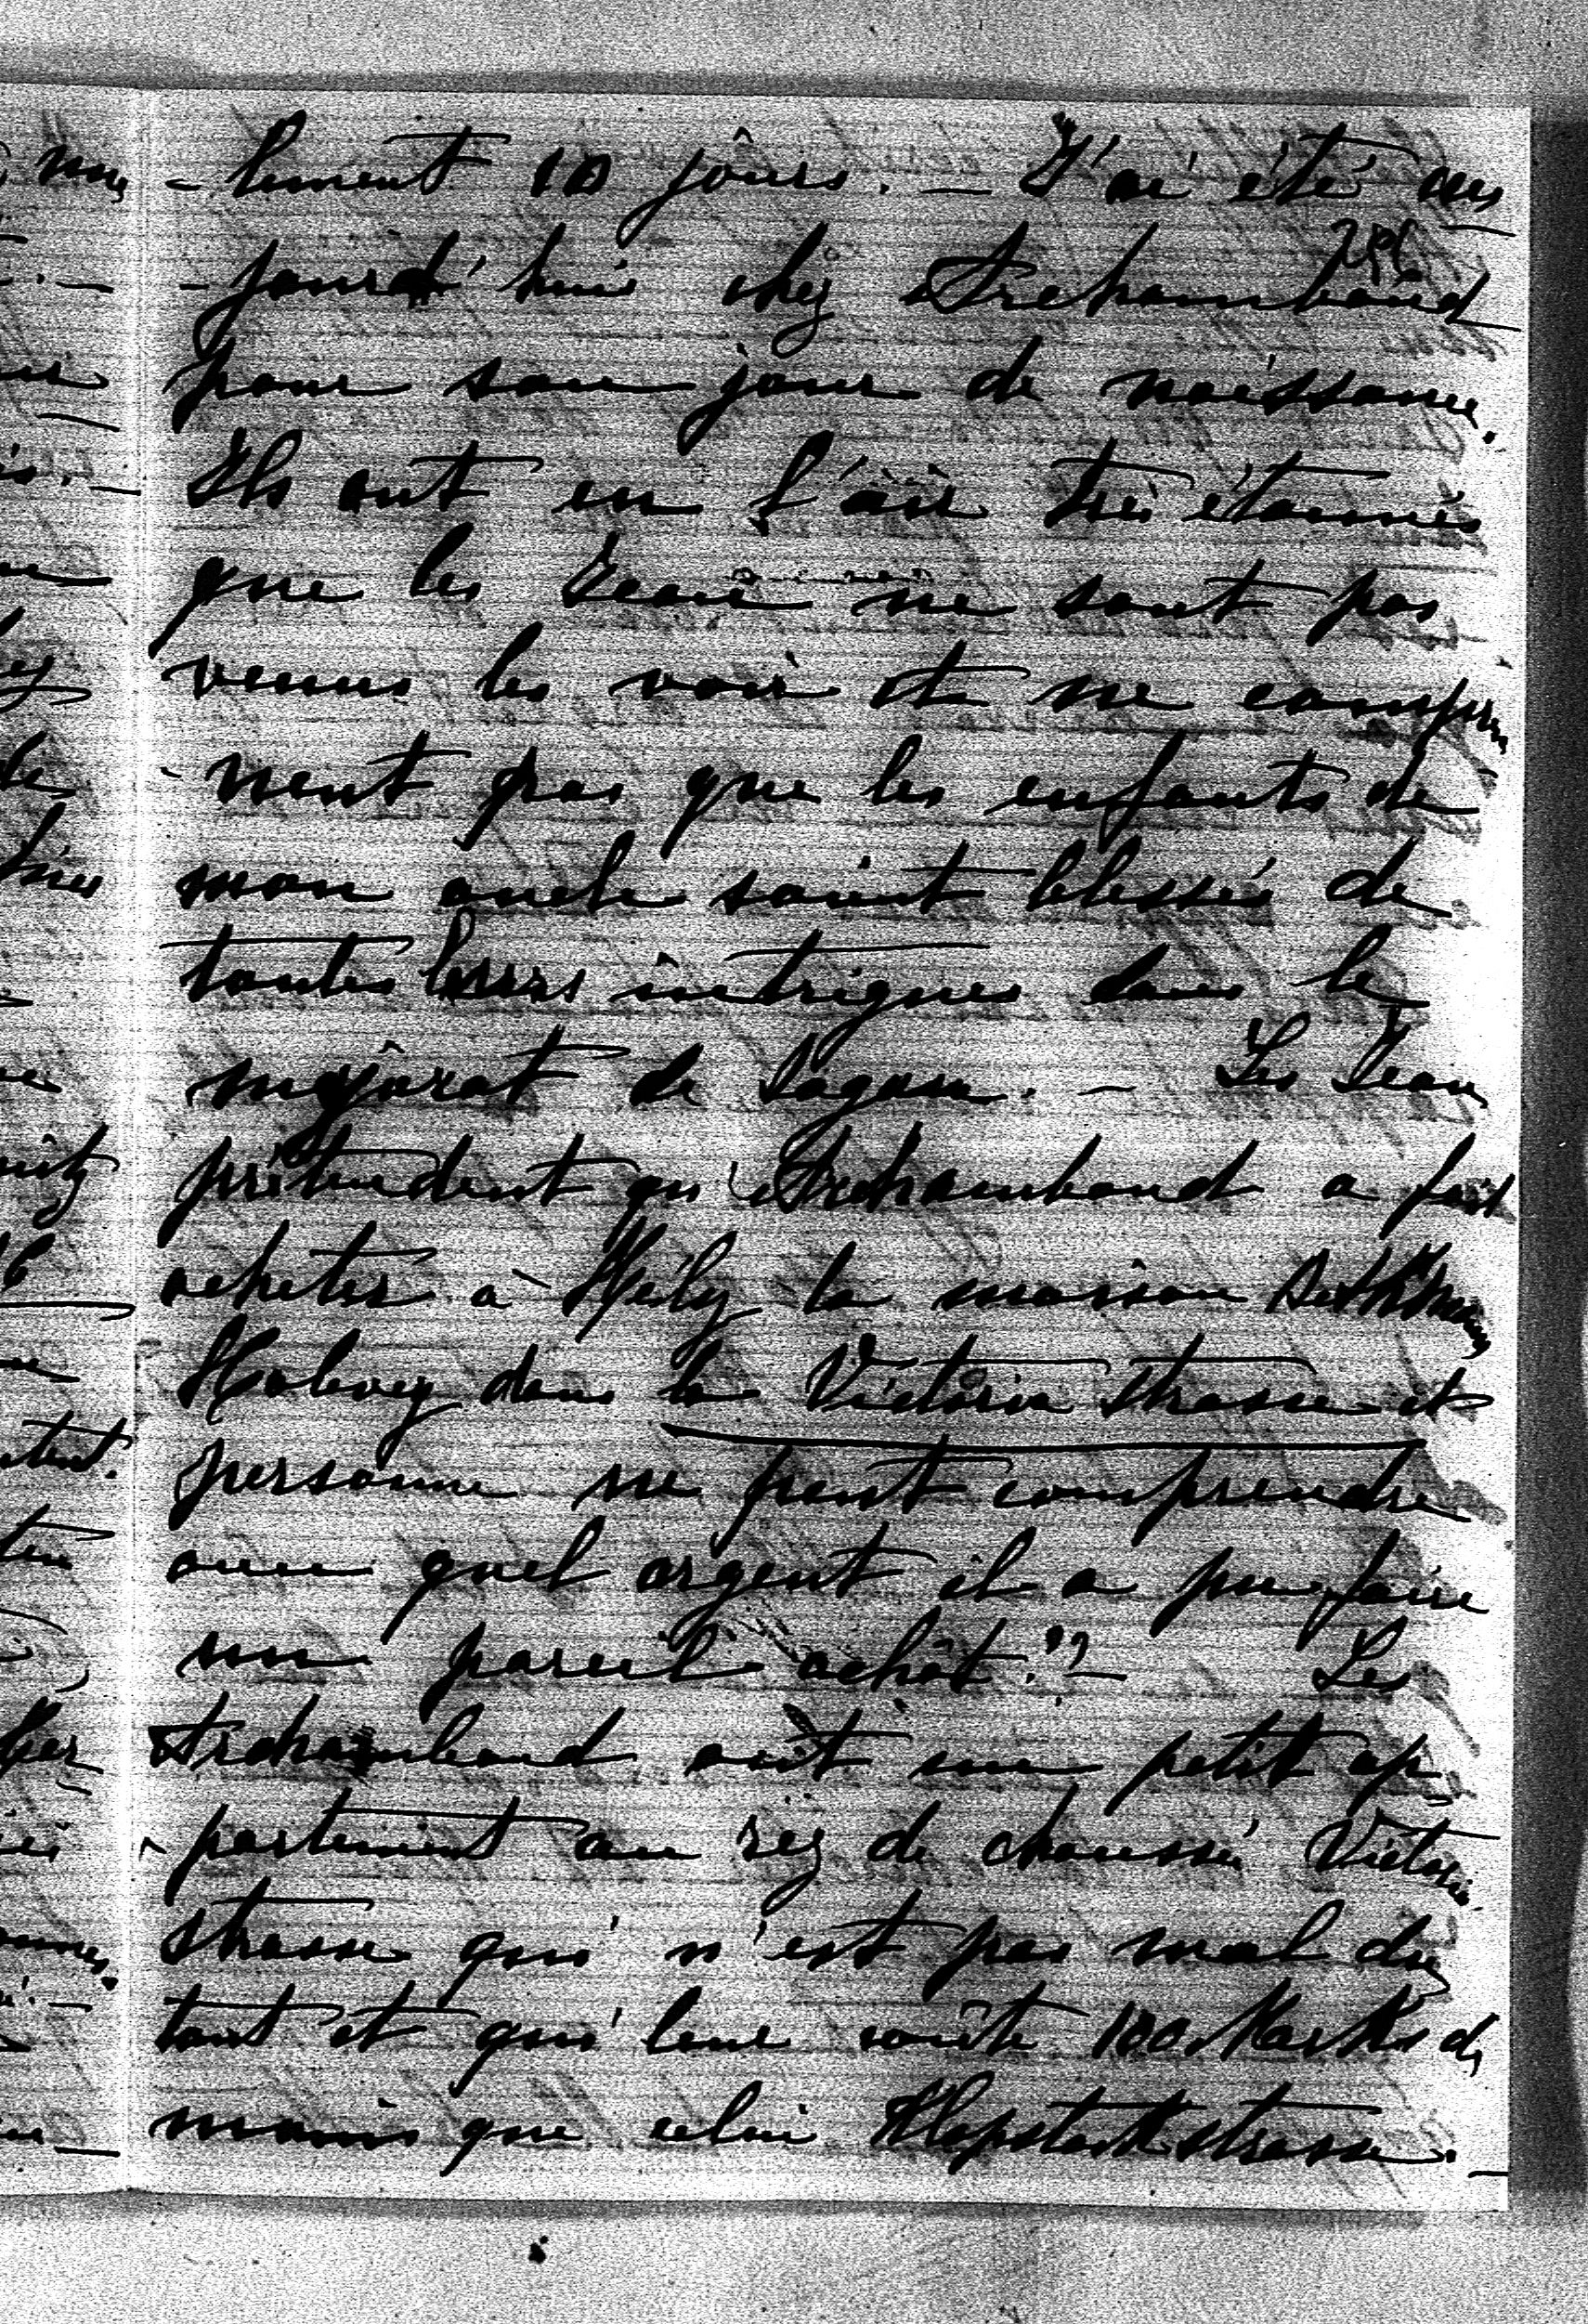 -lement 10 jours. — J'ai été au
-jourd'hui chez Archambaud
pour son jour de naissance.
Ils ont eu l'air très étonnés
que les Jean ne sont pas
venus les voir et ne compren
-nent pas que les enfants de
mon oncle soient blessés de
toutes leurs intrigues dans le
majorat de Sagan. — Les Jean
prétendent qu'Archambaud a fait
acheter à Hély la maison
dans la Victoria Strasse et
personne ne peut comprendre
avec quel argent il a pu faire
un pareil achat?? — Les
Archambaud ont un petit ap
-partement au rez de chaussée Victoria
strasse qui n'est pas mal du
tout et qui leur coûte 100 Marks de
moins que celui Klopstockstrasse. —